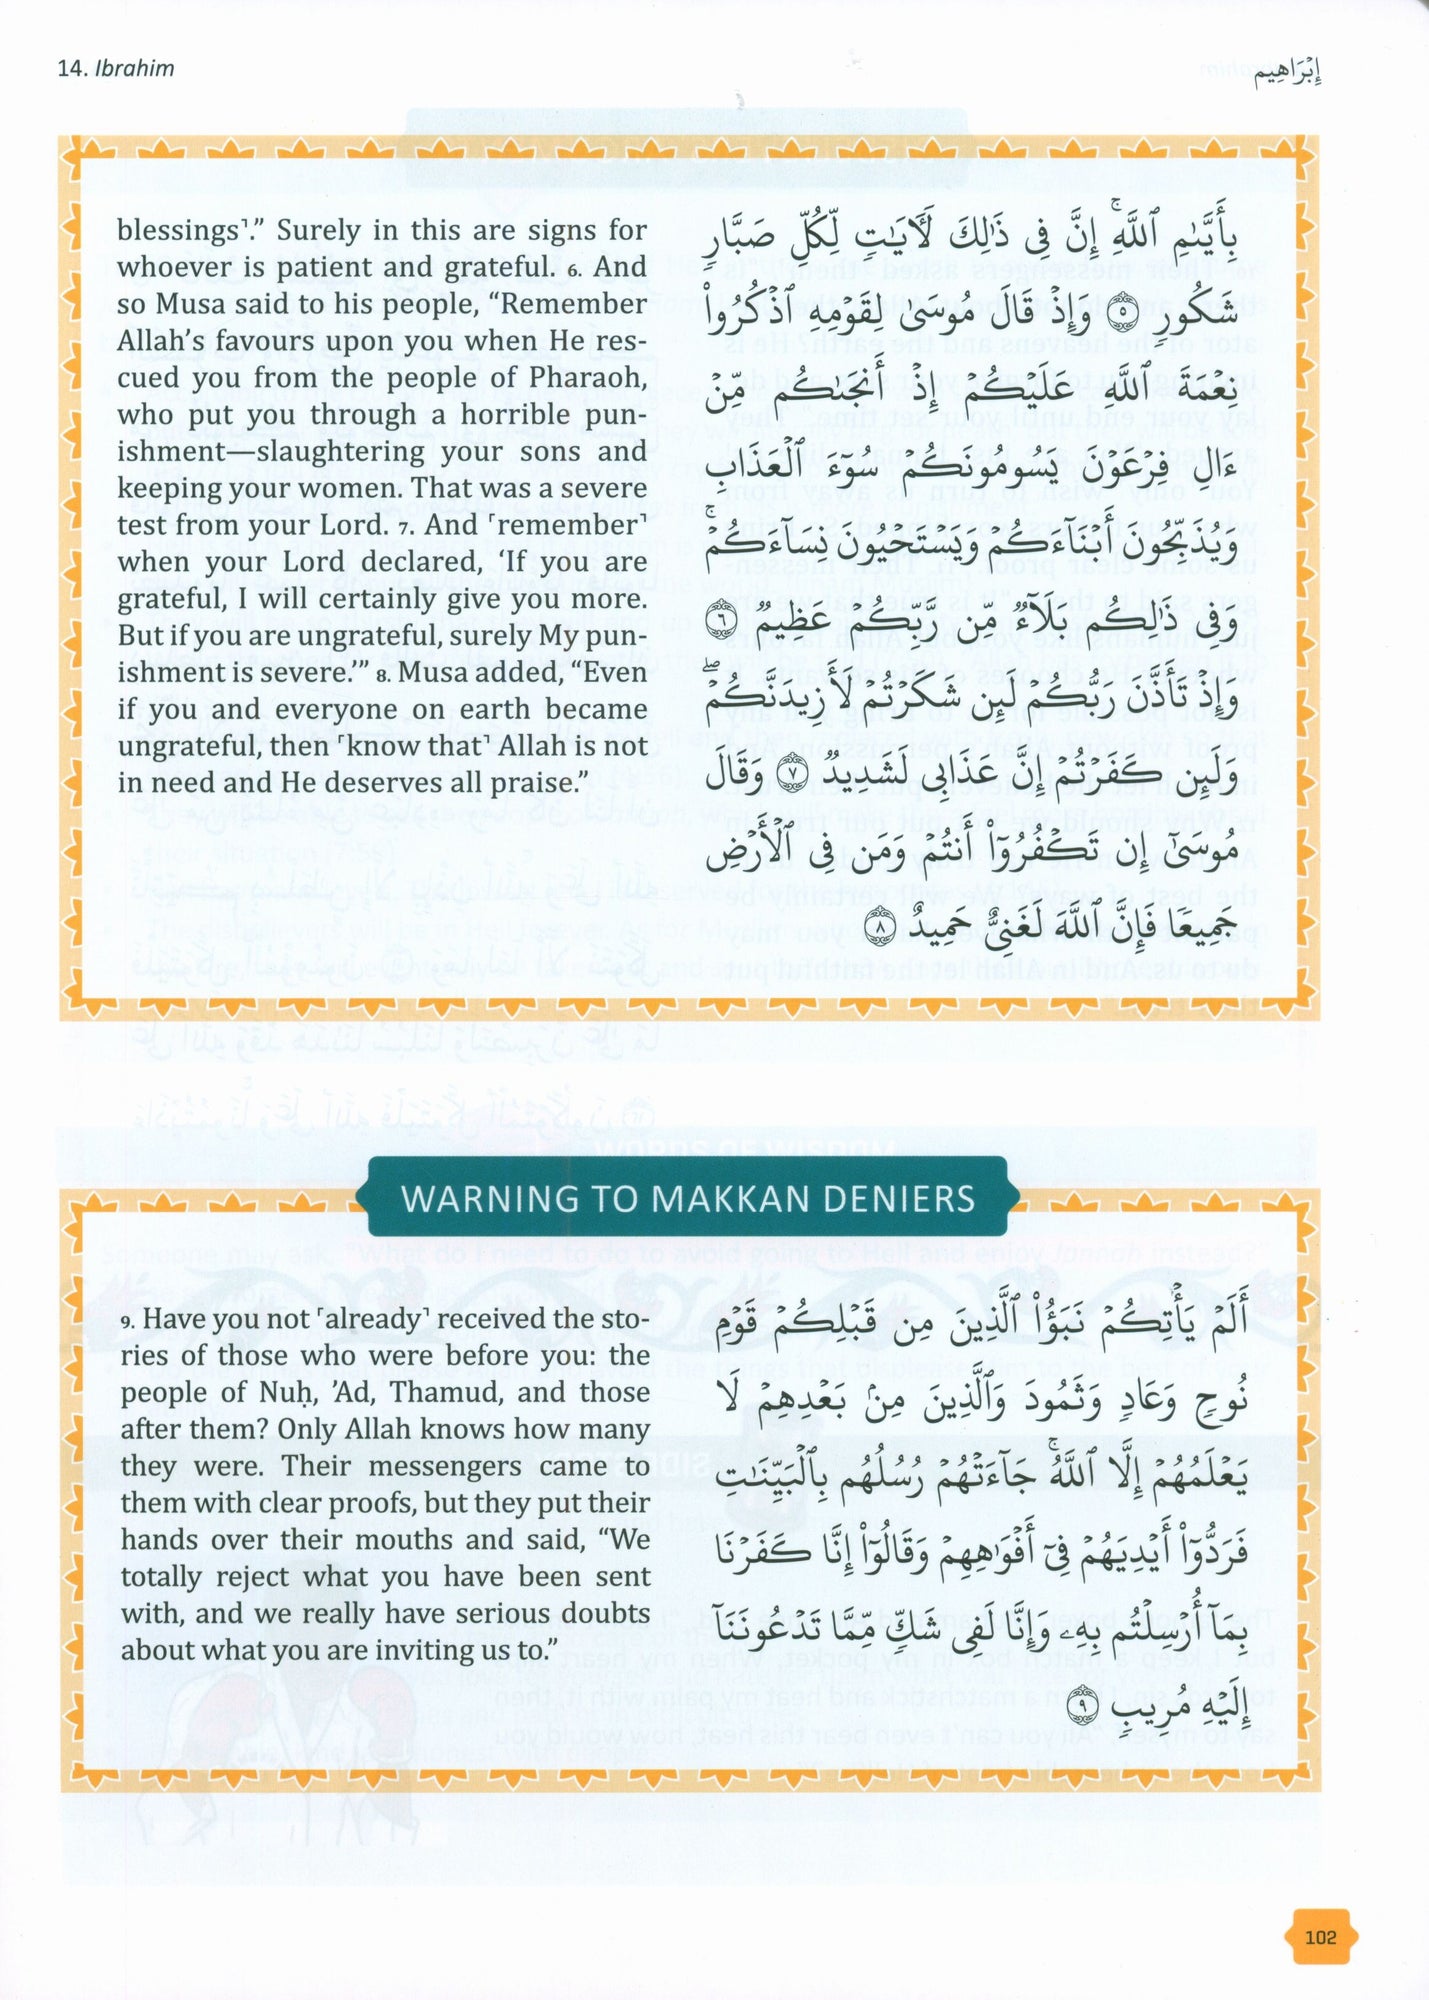 14. Ibrahim
إِبْرَاهِيم
blessings⌝.” Surely in this are signs for
whoever is patient and grateful. 6. And
so Musa said to his people, “Remember
Allah’s favours upon you when He res-
cued you from the people of Pharaoh,
who put you through a horrible pun-
ishment—slaughtering your sons and
keeping your women. That was a severe
test from your Lord. 7. And ⌜remember⌝
when your Lord declared, ‘If you are
grateful, I will certainly give you more.
But if you are ungrateful, surely My pun-
ishment is severe.’” 8. Musa added, “Even
if you and everyone on earth became
ungrateful, then ⌜know that⌝ Allah is not
in need and He deserves all praise.”
بِأَيَّىٰمِ ٱللَّهِۚ إِنَّ فِى ذَٰلِكَ لَأٓيَـٰتٍ لِّكُلِّ صَبَّارٍ
شَكُورٍ ۝٥ وَإِذْ قَالَ مُوسَىٰ لِقَوْمِهِ ٱذْكُرُوا۟
نِعْمَةَ ٱللَّهِ عَلَيْكُمْ إِذْ أَنجَىٰكُم مِّنْ
ءَالِ فِرْعَوْنَ يَسُومُونَكُمْ سُوٓءَ ٱلْعَذَابِ
وَيُذَبِّحُونَ أَبْنَآءَكُمْ وَيَسْتَحْيُونَ نِسَآءَكُمْۚ
وَفِى ذَٰلِكُم بَلَآءٌ مِّن رَّبِّكُمْ عَظِيمٌ ۝٦
وَإِذْ تَأَذَّنَ رَبُّكُمْ لَئِن شَكَرْتُمْ لَأَزِيدَنَّكُمْۖ
وَلَئِن كَفَرْتُمْ إِنَّ عَذَابِى لَشَدِيدٌ ۝٧ وَقَالَ
مُوسَىٰٓ إِن تَكْفُرُوٓا۟ أَنتُمْ وَمَن فِى ٱلْأَرْضِ
جَمِيعًا فَإِنَّ ٱللَّهَ لَغَنِىٌّ حَمِيدٌ ۝٨
WARNING TO MAKKAN DENIERS
9. Have you not ⌜already⌝ received the sto-
ries of those who were before you: the
people of Nuḥ, ’Ad, Thamud, and those
after them? Only Allah knows how many
they were. Their messengers came to
them with clear proofs, but they put their
hands over their mouths and said, “We
totally reject what you have been sent
with, and we really have serious doubts
about what you are inviting us to.”
أَلَمْ يَأْتِكُمْ نَبَؤُا۟ ٱلَّذِينَ مِن قَبْلِكُمْ قَوْمِ
نُوحٍ وَعَادٍ وَثَمُودَ وَٱلَّذِينَ مِنۢ بَعْدِهِمْ لَا
يَعْلَمُهُمْ إِلَّا ٱللَّهُۚ جَآءَتْهُمْ رُسُلُهُم بِٱلْبَيِّنَـٰتِ
فَرَدُّوٓا۟ أَيْدِيَهُمْ فِىٓ أَفْوَٰهِهِمْ وَقَالُوٓا۟ إِنَّا كَفَرْنَا
بِمَآ أُرْسِلْتُم بِهِۦ وَإِنَّا لَفِى شَكٍّ مِّمَّا تَدْعُونَنَآ
إِلَيْهِ مُرِيبٍ ۝٩
102